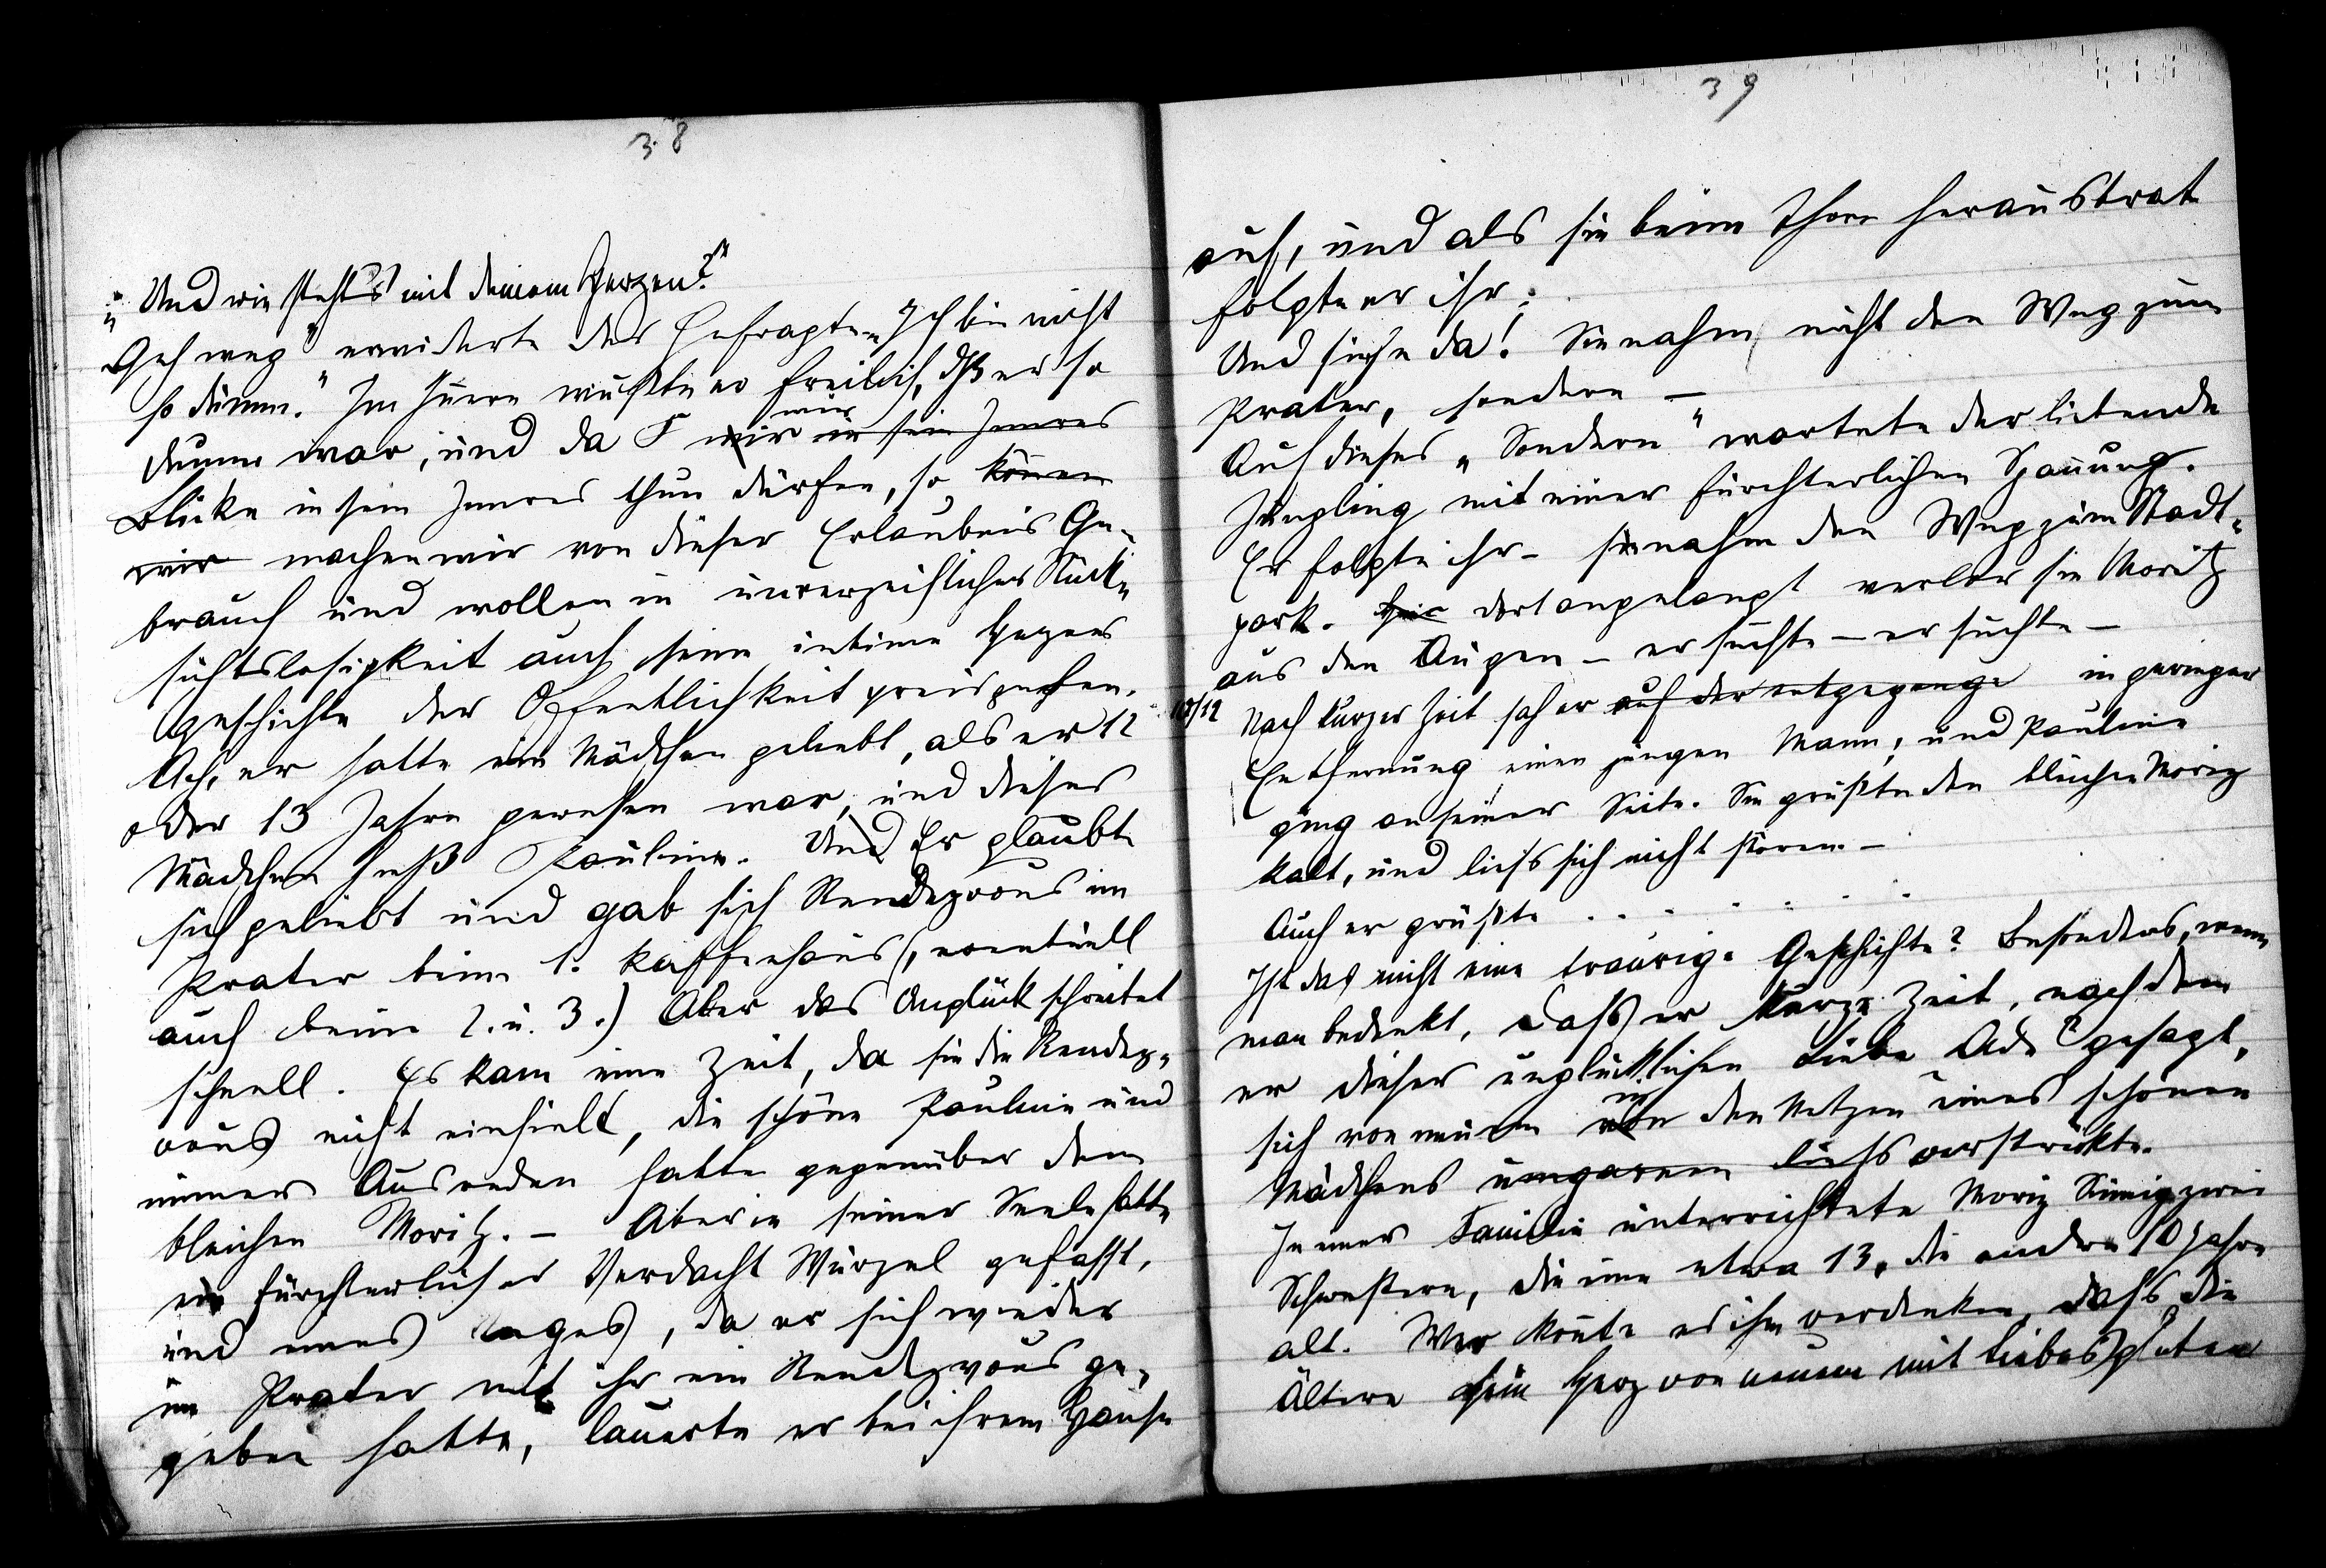 38
„Und wie steht's mit deinem Herzen?"
„Geh weg" erwiderte der Gefragte „Ich bin nicht
so dumm." Im Innern wußte er freilich, dß er so
dumm war, und da F wir wir in sein Inneres
Blicke in sein Inneres thun dürfen, so können
wir machen wir von dieser Erlaubnis Ge-
brauch und wollen in unverzeihlicher Rück-
sichtslosigkeit auch seine intime Herzens
geschichte der Öffentlichkeit preisgeben.
Ach, er hatte ein Mädchen geliebt, als er 12
oder 13 Jahre gewesen war, und dieses
Mädchen hieß Pauline. Und Er glaubte
sich geliebt und gab sich Rendezvous im
Prater beim 1. Kaffeehaus (, eventuell
auch beim 2. u. 3.) Aber das Unglück schreitet
schnell. Es kam eine Zeit, da sie die Rendez-
vous nicht einhielt, die schöne Pauline und
immer Ausreden hatte gegenüber dem
bleichen Moritz. – Aber in seiner Seele hatte
ein fürchterlicher Verdacht Wurzel gefasst,
und eines Tages, da er sich wieder
im Prater mit ihr ein Rendezvous ge-
geben hatte, lauerte er bei ihrem Hause
39
auf, und als sie beim Thore heraustrat
folgte er ihr;
Und siehe da! Sie nahm nicht den Weg zum
Prater, sondern –
Auf dieses „Sondern" wartete der liebende
Jüngling mit einer fürchterlichen Spannung.
Er folgte ihr – sie nahm den Weg zum Stadt-
park. Hier dort angelangt verlor sie Moritz
aus den Augen – er suchte – er suchte –
10/12 Nach kurzer Zeit sah er auf der entgegenge in geringer
Entfernung einen jungen Mann, und Pauline
ging an seiner Seite. Sie grüßte den bleichen Moriz
kalt, und liess sich nicht stören –
Auch er grüßte . . . . . . . .
Ist das nicht eine traurige Geschichte? Besonders, wenn
man bedenkt, dass er kurze Zeit, nachdem
er dieser unglücklichen Liebe Ade gesagt,
sich von neuem von in den Netzen eines schönen
Mädchens umgarnen liess verstrickte.
In einer Familie unterrichtete Moriz zwei
Schwestern, die eine etwa 13, die andre 10 Jahre
alt. Wer konnte es ihm verdenken, dass die
Ältere sein Herz von neuem mit Liebesgluten